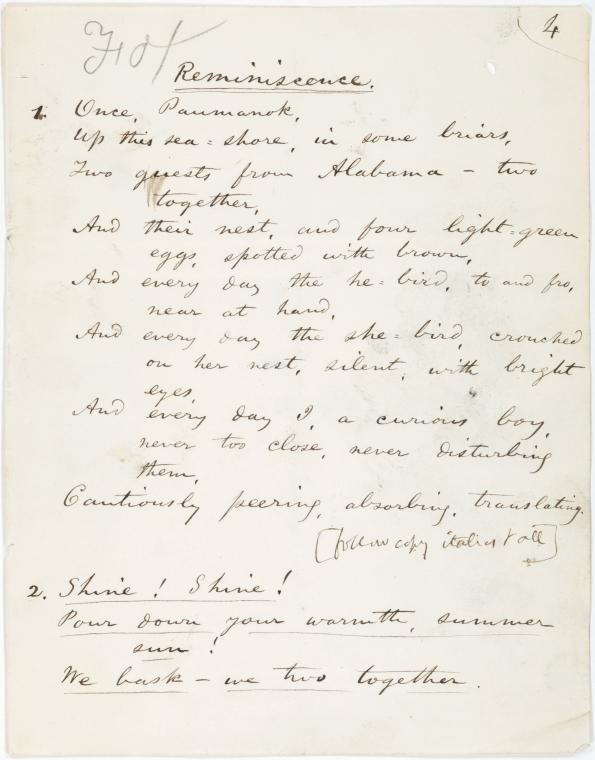 4
Reminiscence.
1. Once, Paumanok,
Up this sea=shore, in some briars,
Two guests from Alabama – two
together,
And their nest, and four light=green
eggs, spotted with brown,
And every day the he=bird, to and fro,
near at hand,
And every day the she=bird, crouched
on her nest, silent, with bright
eyes,
And every day I, a curious boy,
never too close, never disturbing
them,
Cautiously peering, absorbing, translating.
[follow copy italics & all]
2. Shine! Shine!
Pour down your warmth, summer
sun!
We bask – we two together.